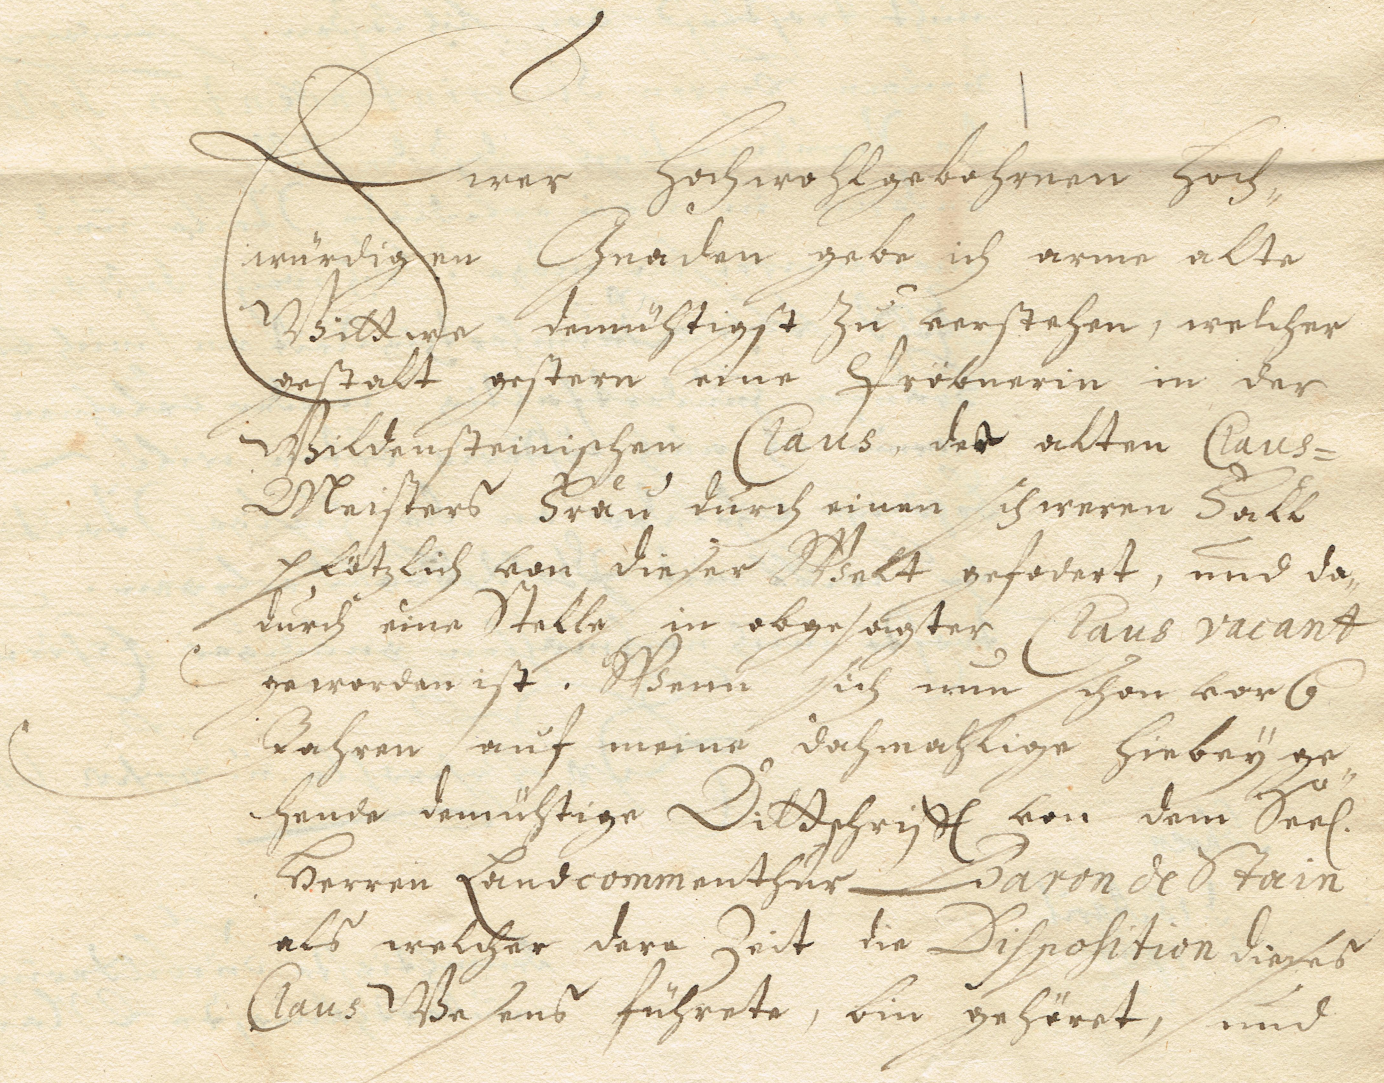 Ewer Hochwohlgebohrnen Hoch„
würdigen Gnaden gebe ich arme alte
Wittwe demühtigst zu verstehen, welcher
gestalt gestern eine Pröbnerin in der
Wildensteinischen Claus, der alten Claus=
Meisters Frau durch einen schweren Fall
plötzlich von dieser Welt gefodert, und da„
durch eine Stelle in obgesagter Claus vacant
geworden ist. Wenn ich nun schon vor 6
Jahren auf meine dahmahlige hiebey ge„
hende demühtige Bittschrifft von dem Seel.
Herren Landcommenthur Baron de Stain
als welcher dero Zeit die Disposition dieses
Claus Wesens führete, bin gehöret, und